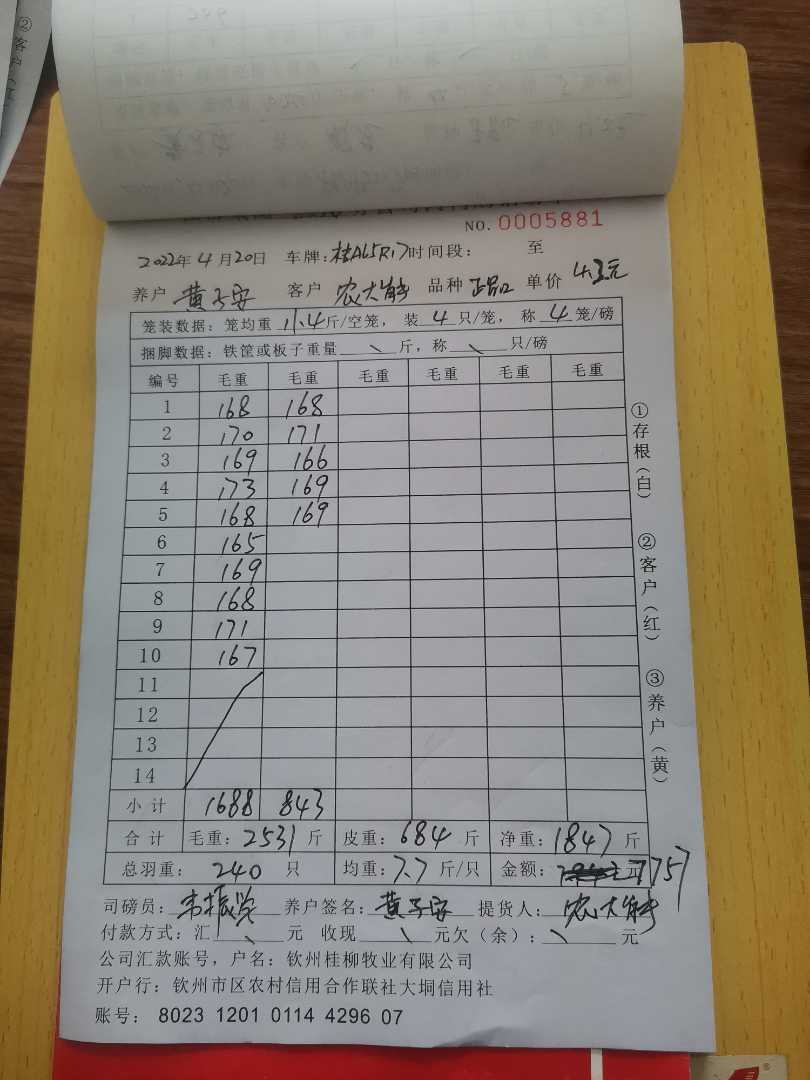 NO. 0005881
2022年4月20日 车牌:桂AL5R17时间段: 至
养户 黄子安 客户 农大 品种 正品 单价 4.3元
笼装数据: 笼均重 11.4斤/空笼, 装 4 只/笼, 称 4 笼/磅
捆脚数据: 铁筐或板子重量 斤, 称 只/磅
编号 毛重 毛重 毛重 毛重 毛重 毛重
1 168 168
2 170 171
3 169 166
4 173 169
5 168 169
6 165
7 169
8 168
9 171
10 167
11
12
13
14
小计 1688 843
合计 毛重: 2531 斤 皮重: 684 斤 净重: 1847 斤
总羽重: 240 只 均重: 7.7 斤/只 金额: 元 7757
司磅员: 韦振 养户签名: 黄子安 提货人: 农大
付款方式: 汇 元 收现 元欠(余): 元
公司汇款账号, 户名: 钦州桂柳牧业有限公司
开户行: 钦州市区农村信用合作联社大垌信用社
账号: 8023 1201 0114 4296 07
①存根(白)
②客户(红)
③养户(黄)